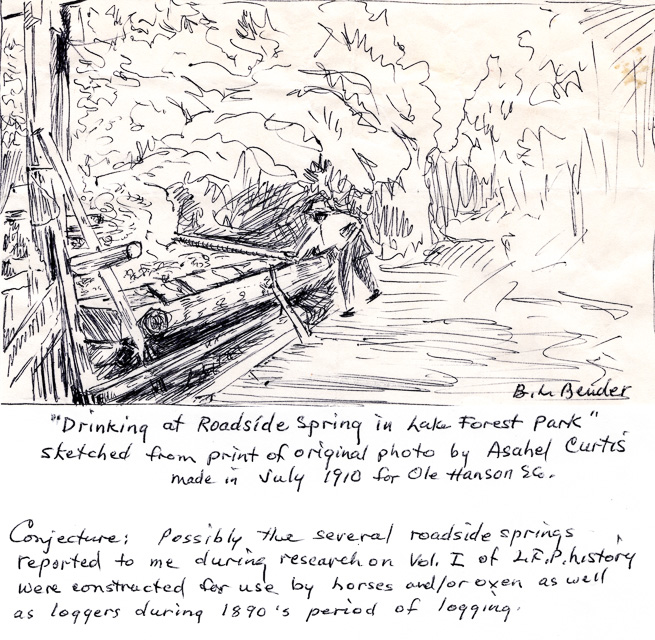 B. L. Bender
"Drinking at Roadside Spring in Lake Forest Park"
sketched from print of original photo by Asahel Curtis
made in July 1910 for Ole Hanson & Co.
Conjecture: Possibly the several roadside springs
reported to me during research on Vol. I of L.F.P. history
were constructed for use by horses and/or oxen as well
as loggers during 1890's period of logging.